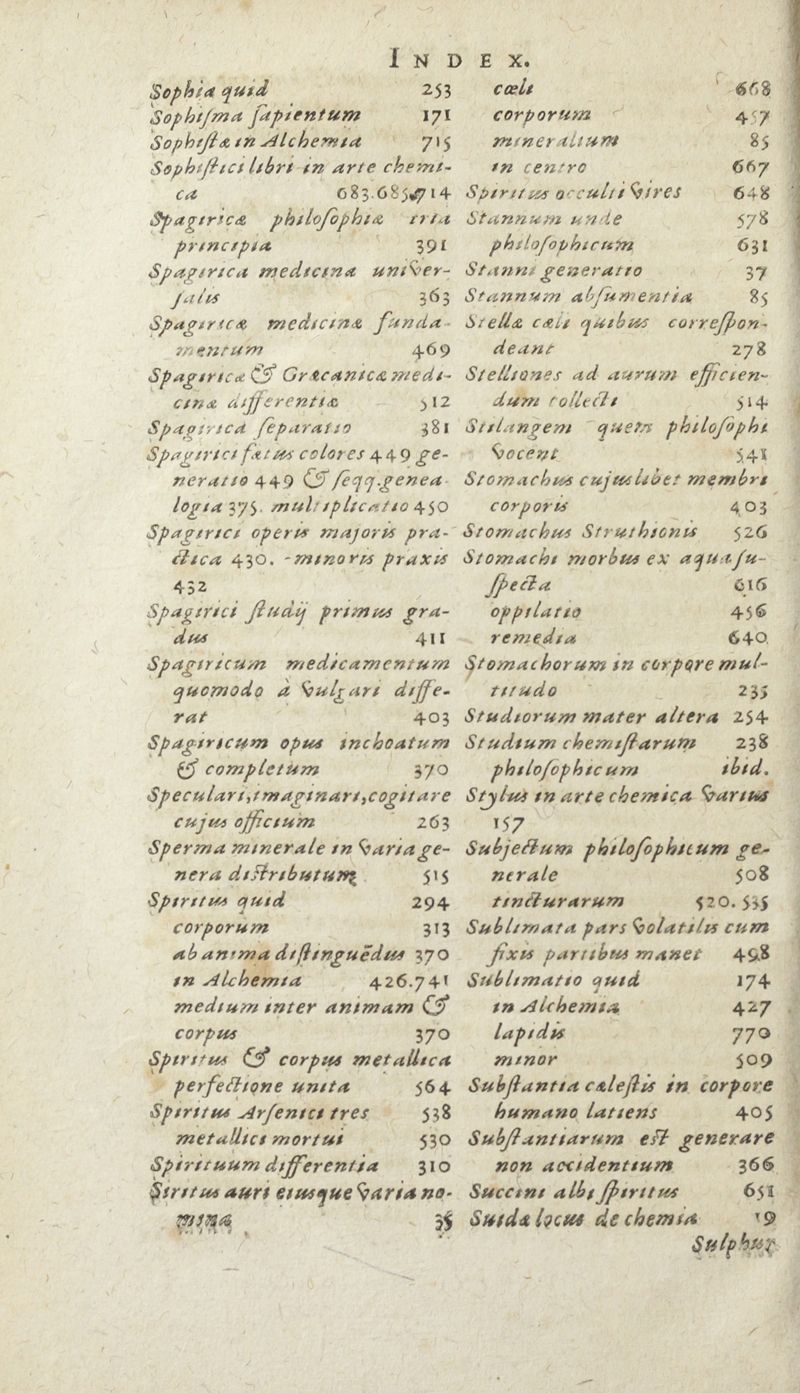 INDEX.
Sophia quid 253
Sophiſma ſapientum 171
Sophiſtæ in Alchemia 715
Sophiſtici libri in arte chemi-
ca 683.685.714
Spagiricæ philoſophiæ tria
principia 391
Spagirica medicina univer-
ſalis 363
Spagiricæ medicinæ funda-
mentum 469
Spagiricæ & Græcanicæ medi-
cinæ differentia 512
Spagirica ſeparatio 381
Spagirici fætus colores 449 ge-
neratio 449 & ſeqq. genea-
logia 375. multiplicatio 450
Spagirici operis majoris pra-
ctica 430. - minoris praxis
432
Spagirici ſtudij primus gra-
dus 411
Spagiricum medicamentum
quomodo à vulgari diffe-
rat 403
Spagiricum opus inchoatum
& completum 370
Speculari, imaginari, cogitare
cujus officium 263
Sperma minerale in varia ge-
nera diſtributum 515
Spiritus quid 294
corporum 313
ab anima diſtinguēdus 370
in Alchemia 426.741
medium inter animam &
corpus 370
Spiritus & corpus metallica
perfectione unita 564
Spiritus Arſenici tres 538
metallici mortui 530
Spirituum differentia 310
Siritus auri eiusque varia no-
mina 35
cœli 668
corporum 457
mineralium 85
in centro 667
Spiritus occulti vires 648
Stannum unde 578
philoſophicum 631
Stanni generatio 37
Stannum abſumentia 85
Stellæ cæli quibus correſpon-
deant 278
Stelliones ad aurum efficien-
dum collecti 514
Stilangem quem philoſophi
vocent 541
Stomachus cujuslibet membri
corporis 403
Stomachus Struthionis 526
Stomachi morbus ex aqua ſu-
ſpecta 616
oppilatio 456
remedia 640
Stomachorum in corpore mul-
titudo 235
Studiorum mater altera 254
Studium chemiſtarum 238
philoſophicum ibid.
Stylus in arte chemica varius
157
Subjectum philoſophicum ge-
nerale 508
tincturarum 520. 535
Sublimata pars volatilis cum
fixis partibus manet 498
Sublimatio quid 174
in Alchemia 427
lapidis 770
minor 509
Subſtantia cæleſtis in corpore
humano latiens 405
Subſtantiarum eſt generare
non accidentium 366
Succini albi ſpiritus 651
Suidæ locus de chemia 19
Sulphur